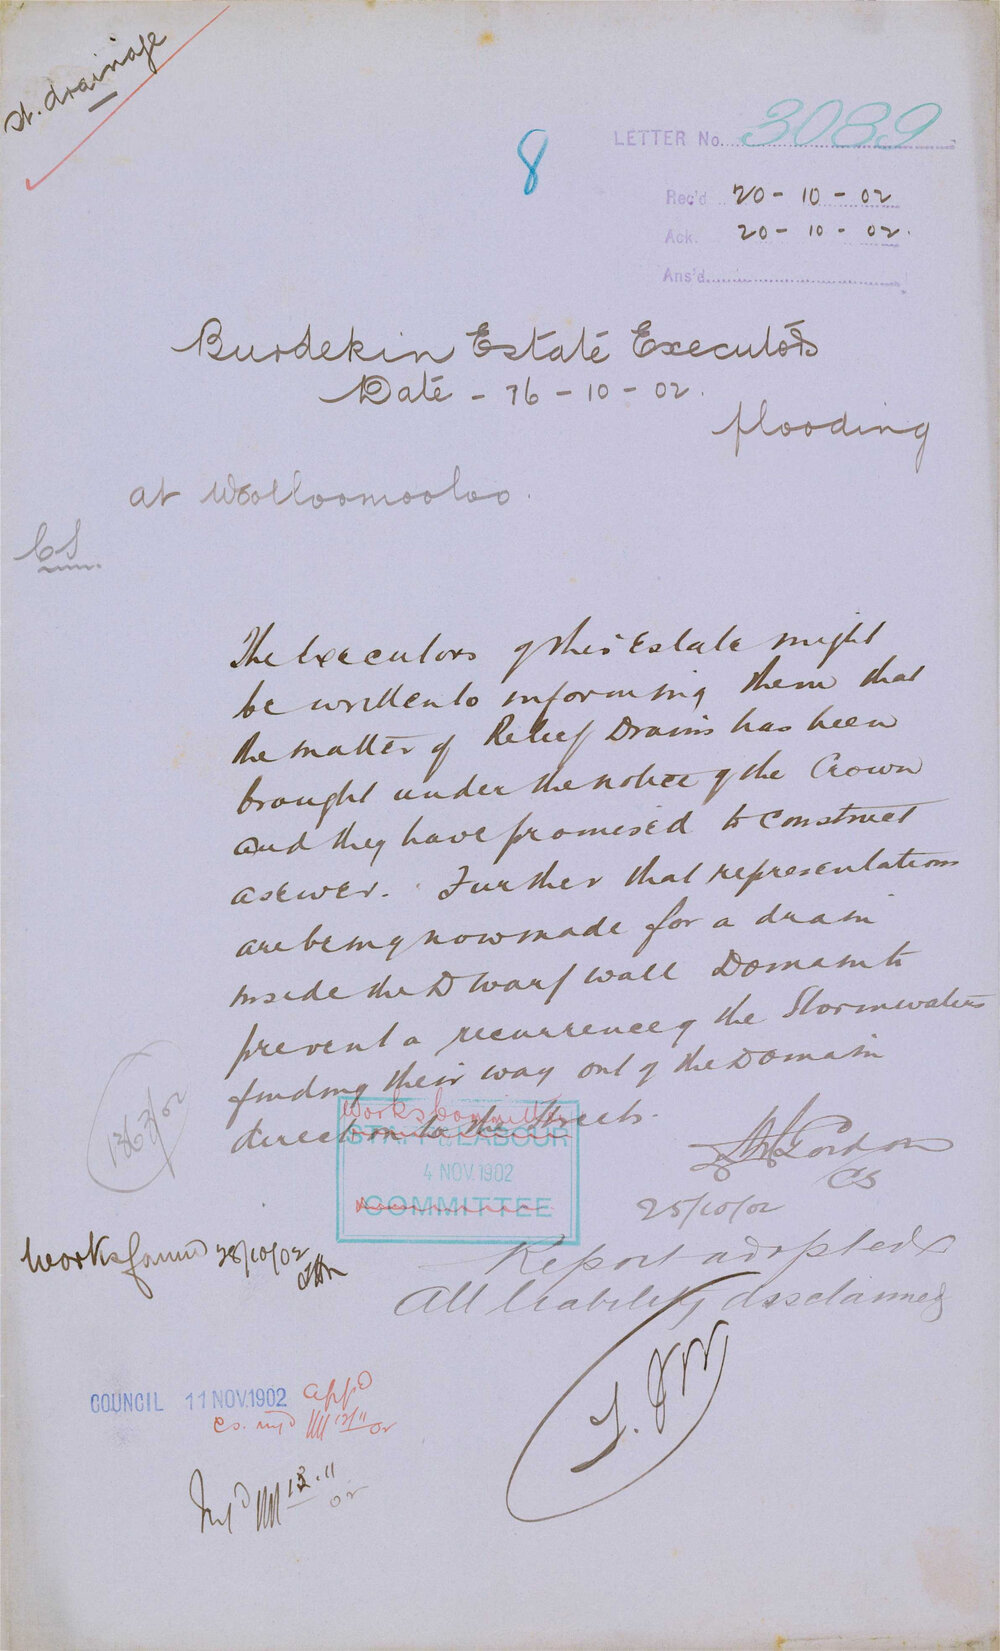 St. drainage
8
LETTER No. 3089
Rec'd 20-10-02
Ack. 20-10-02.
Ans'd
Burdekin Estate Executors
Date - 16-10-02.
flooding
at Woolloomooloo.
CS
The Executors of this Estate might
be written to informing them that
the matter of Relief Drains has been
brought under the notice of the Crown
and they have promised to construct
a sewer. Further that representations
are being now made for a drain
inside the Dwarf wall Domain to
prevent a recurrence of the Stormwaters
finding their way out of the Domain
direction to the Streets.
Works Committee
STAFF & LABOUR
4 NOV. 1902
COMMITTEE
1363/02
Gordon
CS
25/10/02
Works 28/10/02
Report adopted &
All liability disclaimed
COUNCIL 11 NOV. 1902 app'd
CS. 12/11 02
11 02